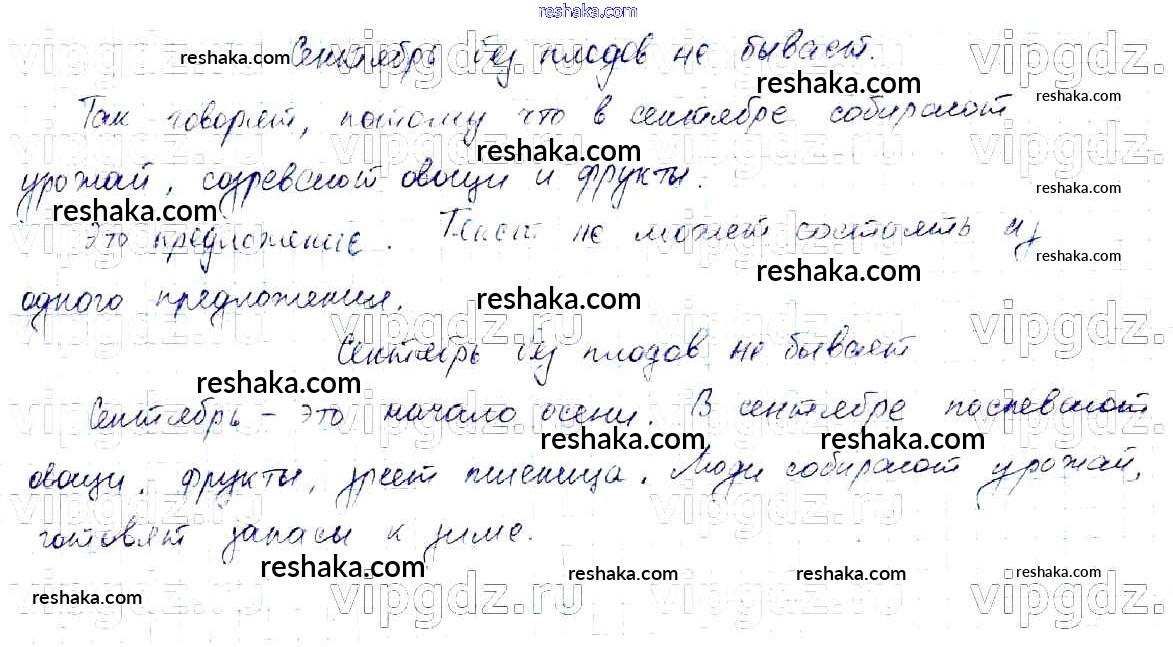 reshaka.com
Сентябрь без плодов не бывает.
Так говорят, потому что в сентябре собирают
урожай, созревают овощи и фрукты.
Это предложение. Текст не может состоять из
одного предложения.
Сентябрь без плодов не бывает
Сентябрь – это начало осени. В сентябре поспевают
овощи, фрукты, зреет пшеница. Люди собирают урожай,
готовят запасы к зиме.